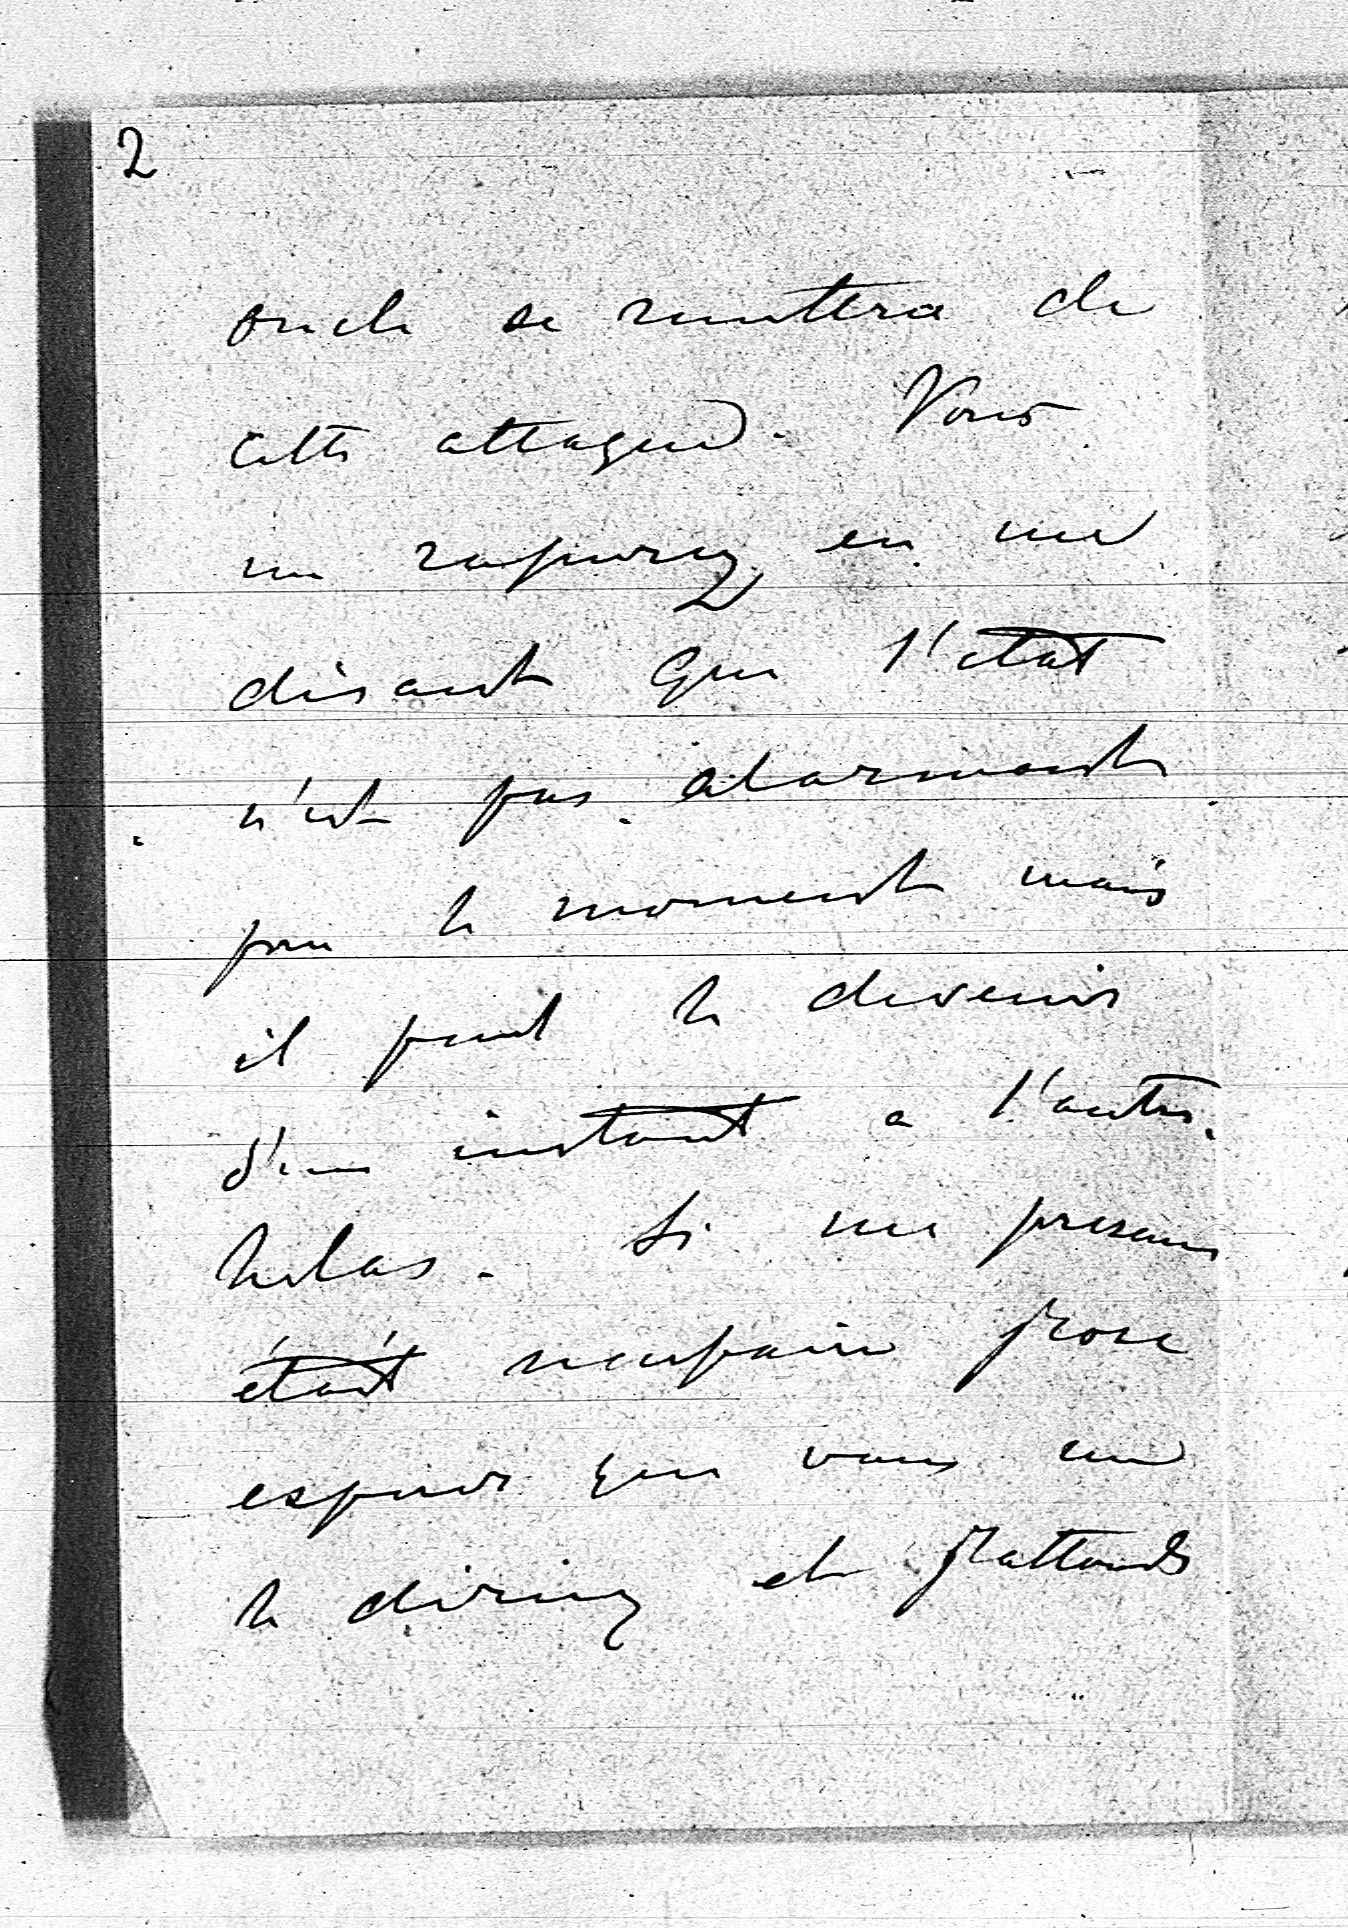 2
oncle se remettra de
cette attaque. Vous
me rassurez en me
disant que l'etat
n'est pas alarmant
pour le moment mais
il peut le devenir
d'un instant a l'autre.
helas. Si ma presence
était necessaire j'ose
esperer que vous me
le diriez et j'attends